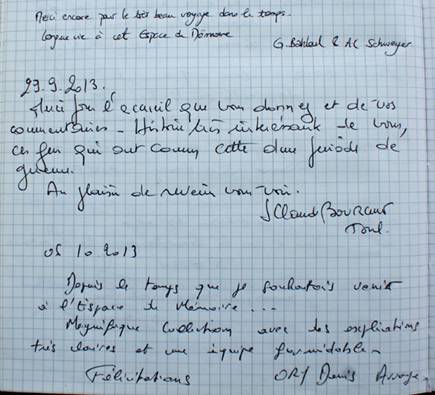 Merci encore pour le très beau voyage dans le temps.
Longue vie à cet Espace de Mémoire
G. & AC
29.9.2013.
Merci pour l'accueil que vous donnez et de vos
commentaires - Histoire très intéressante de vous,
ces gens qui ont connu cette dure période de
guerre.
Au plaisir de revenir vous voir.
J Claude
Toul.
05 10 2013
Depuis le temps que je souhaitais venir
à l'Espace de Mémoire ...
Magnifique Collection avec des explications
très claires et une équipe formidable.
Félicitations
Denis